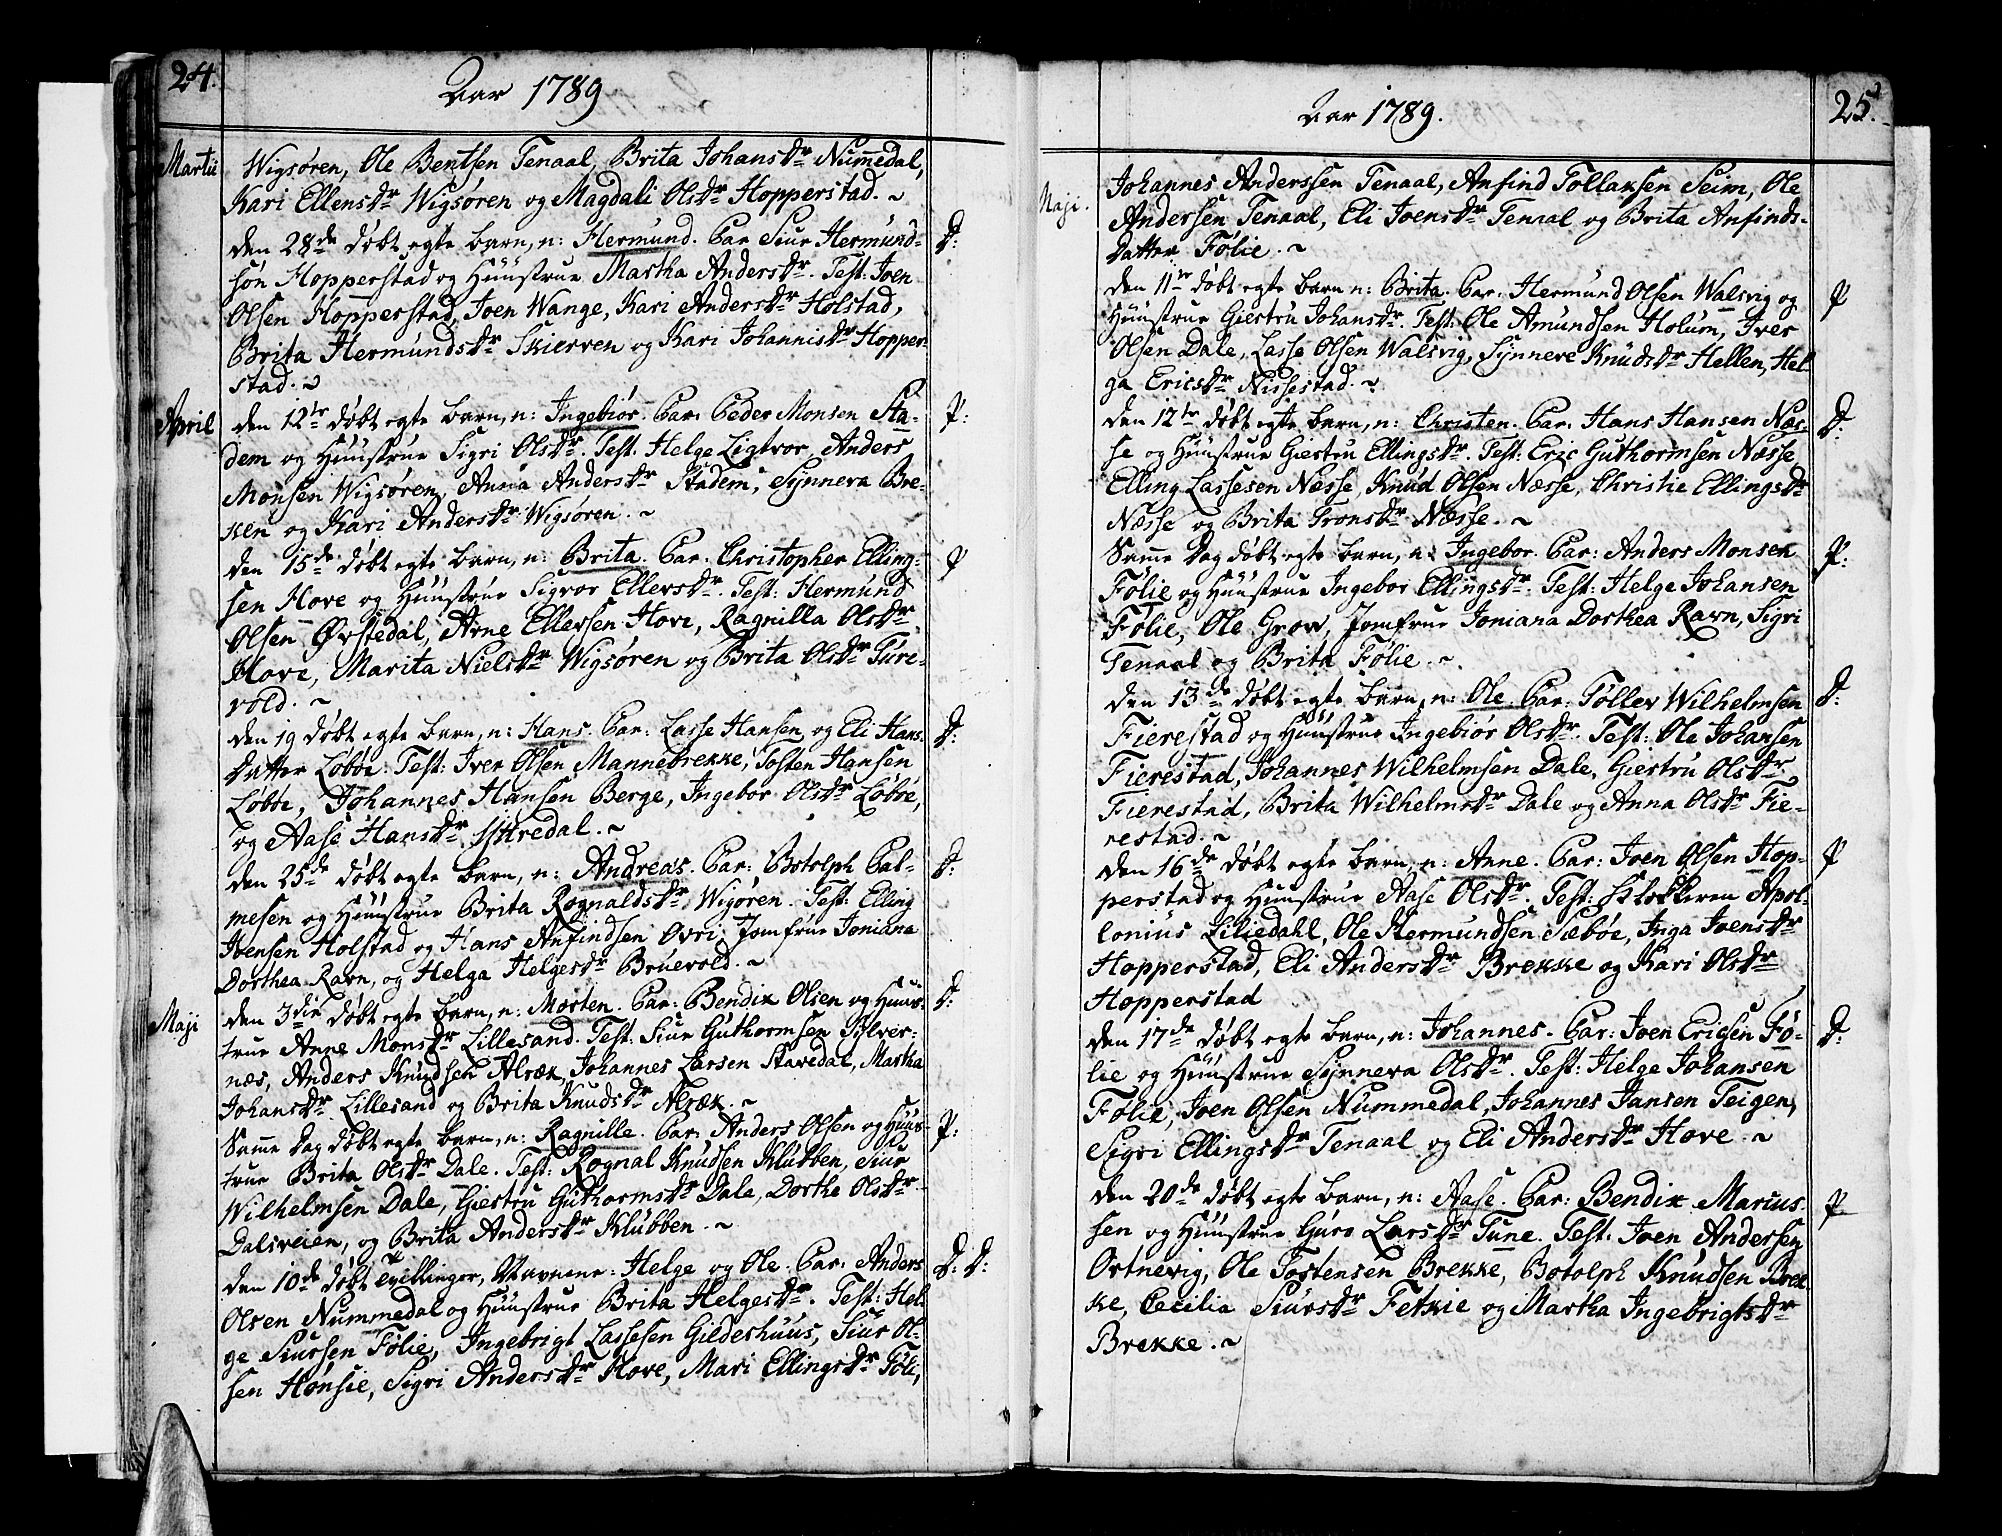 24.
Aar 1789
Martii
Wigsøren, Ole Bentsen Tenaal, Brita Johansdr Nummedal,
Kari Ellensdr Wigsøren og Magdali Olsdr Hopperstad. ~
den 28de døbt egte barn, n: Hermund. Par Siur Hermund-
søn Hopperstad og Huustrue Martha Andersdr. Test: Joen
D:
Olsen Hopperstad, Joen Wange, Kari Andersdr Holstad,
Brita Hermundsdr Skierven og Kari Johannisdr Hopper-
stad. ~
April
den 12te døbt egte barn, n: Ingebiør. Par: Peder Monsen Sta-
P:
dem og Huustrue Sigri Olsdr. Test. Helge Ligtvor, Anders
Monsen Wigsøren, Anna Andersdr Stadem, Synneva Bre-
ken og Kari Andersdr Wigsøren. ~
den 15de døbt egte barn, n: Brita. Par. Christopher Elling-
P
sen Hove og Huustrue Sigvor Ellersdr. Test: Hermund
Olsen Ørstedal, Arne Ellersen Hove, Ragnilla Olsdr
Hove, Marita Nielsdr Wigsøren og Brita Olsdr Ture-
vold. ~
den 19 døbt egte barn, n: Hans. Par: Lasse Hansen og Eli Hans-
D:
Datter Løbøe. Test: Iver Olsen Mannebrekke, Tosten Hansen
Løbøe, Johannes Hansen Berge, Ingebor Olsdr Løbøe,
og Aase Hansdr Yttredal. ~
den 25de døbt egte barn, n: Andreas. Par: Botolph Pal-
D:
mesen og Huustrue Brita Rognaldsdr Wigøren. Test: Elling
Joensen Holstad og Hans Anfindsen Øvri, Jomfrue Joniana
Dorthea Ravn, og Helga Helgesdr Bruevold. ~
Maji
den 3die døbt egte barn, n: Morten. Par: Bendix Olsen og Huus-
D:
true Anne Monsdr Lillesand. Test: Siur Guthormsen Sylver-
næs, Anders Knudsen Alræk, Johannes Larsen Stavedal, Martha
Johansdr Lillesand og Brita Knudsdr Alræk. ~
Samme Dag døbt egte barn, n: Ragnille. Par: Anders Olsen og Huus-
P:
true Brita Olsdr Dale. Test: Rognal Knudsen Klubben, Siur
Wilhelmsen Dale, Giestru Guthormsdr Dale, Dorthe Olsdr
Dalsveien, og Brita Andersdr Klubben. ~
den 10de døbt Tvillinger, Navnene: Helge og Ole. Par. Anders
D: D:
Olsen Nummedal og Huustrue Brita Helgesdr. Test: Hel-
ge Siursen Følie, Ingebrigt Lassesen Gildeshuus, Siur Ol-
sen Hønsie, Sigri Andersdr Hove, Mari Ellingsdr Føli,
25.
Aar 1789.
Maji.
Johannes Anderssen Tenaal, Anfind Tollaksen Seim, Ole
Andersen Tenaal, Eli Joensdr Tenaal og Brita Anfinds-
Datter Følie. ~
den 11te døbt egte barn n: Brita. Par: Hermund Olsen Walsvig og
P
Huustrue Giestru Johansdr. Test: Ole Amundsen Holum, Iver
Olsen Dale, Lasse Olsen Walsvig, Synneve Knudsdr Hellen, Hel-
ga Ericsdr Nissestad. ~
den 12te døbt egte barn, n: Christen. Par. Hans Hansen Næs-
D:
se og Huustrue Giestru Ellingsdr. Test: Eric Guthormsen Næsse
Elling Lassesen Næsse, Knud Olsen Næsse, Christie Ellingsdr
Næsse og Brita Tronsdr Næsse. ~
Samme Dag døbt egte barn, n: Ingebor. Par: Anders Monsen
P:
Følie og Huustrue Ingebor Ellingsdr. Test: Helge Johansen
Følie, Ole Grow, Jomfrue Joniana Dorthea Ravn, Sigri
Tenaal og Brita Følie. ~
den 13de døbt egte barn, n: Ole. Par: Tøllev Wilhelmsen
D:
Fierestad og Huustrue Ingebiør Olsdr. Test: Ole Johansen
Fierestad, Johannes Wilhelmsen Dale, Giestru Olsdr
Fierestad, Brita Wilhelmsdr Dale og Anna Olsdr Fie-
restad. ~
den 16de døbt egte barn, n: Anne. Par: Joen Olsen Hop-
P
perstad og Huustrue Aase Olsdr. Test: Klokkeren Apol-
lonius Liliedahl, Ole Hermundsen Sæbøe, Inga Joensdr
Hopperstad, Eli Andersdr Brekke og Kari Olsdr
Hopperstad
den 17de døbt egte barn, n: Johannes. Par: Joen Ericsen Fø-
D:
lie og Huustrue Synneva Olsdr. Test: Helge Johansen
Følie, Joen Olsen Nummedal, Johannes Jansen Teigen,
Sigri Ellingsdr Tenaal og Eli Andersdr Hove. ~
den 20de døbt egte barn, n: Aase. Par: Bendix Marius-
P
sen og Huustrue Guro Larsdr Tune. Test. Joen Andersen
Ortnevig, Ole Tostensen Brekke, Botolph Knudsen Brek-
ke, Cecilia Siursdr Fetkie og Martha Ingebrigtsdr
Brekke. ~